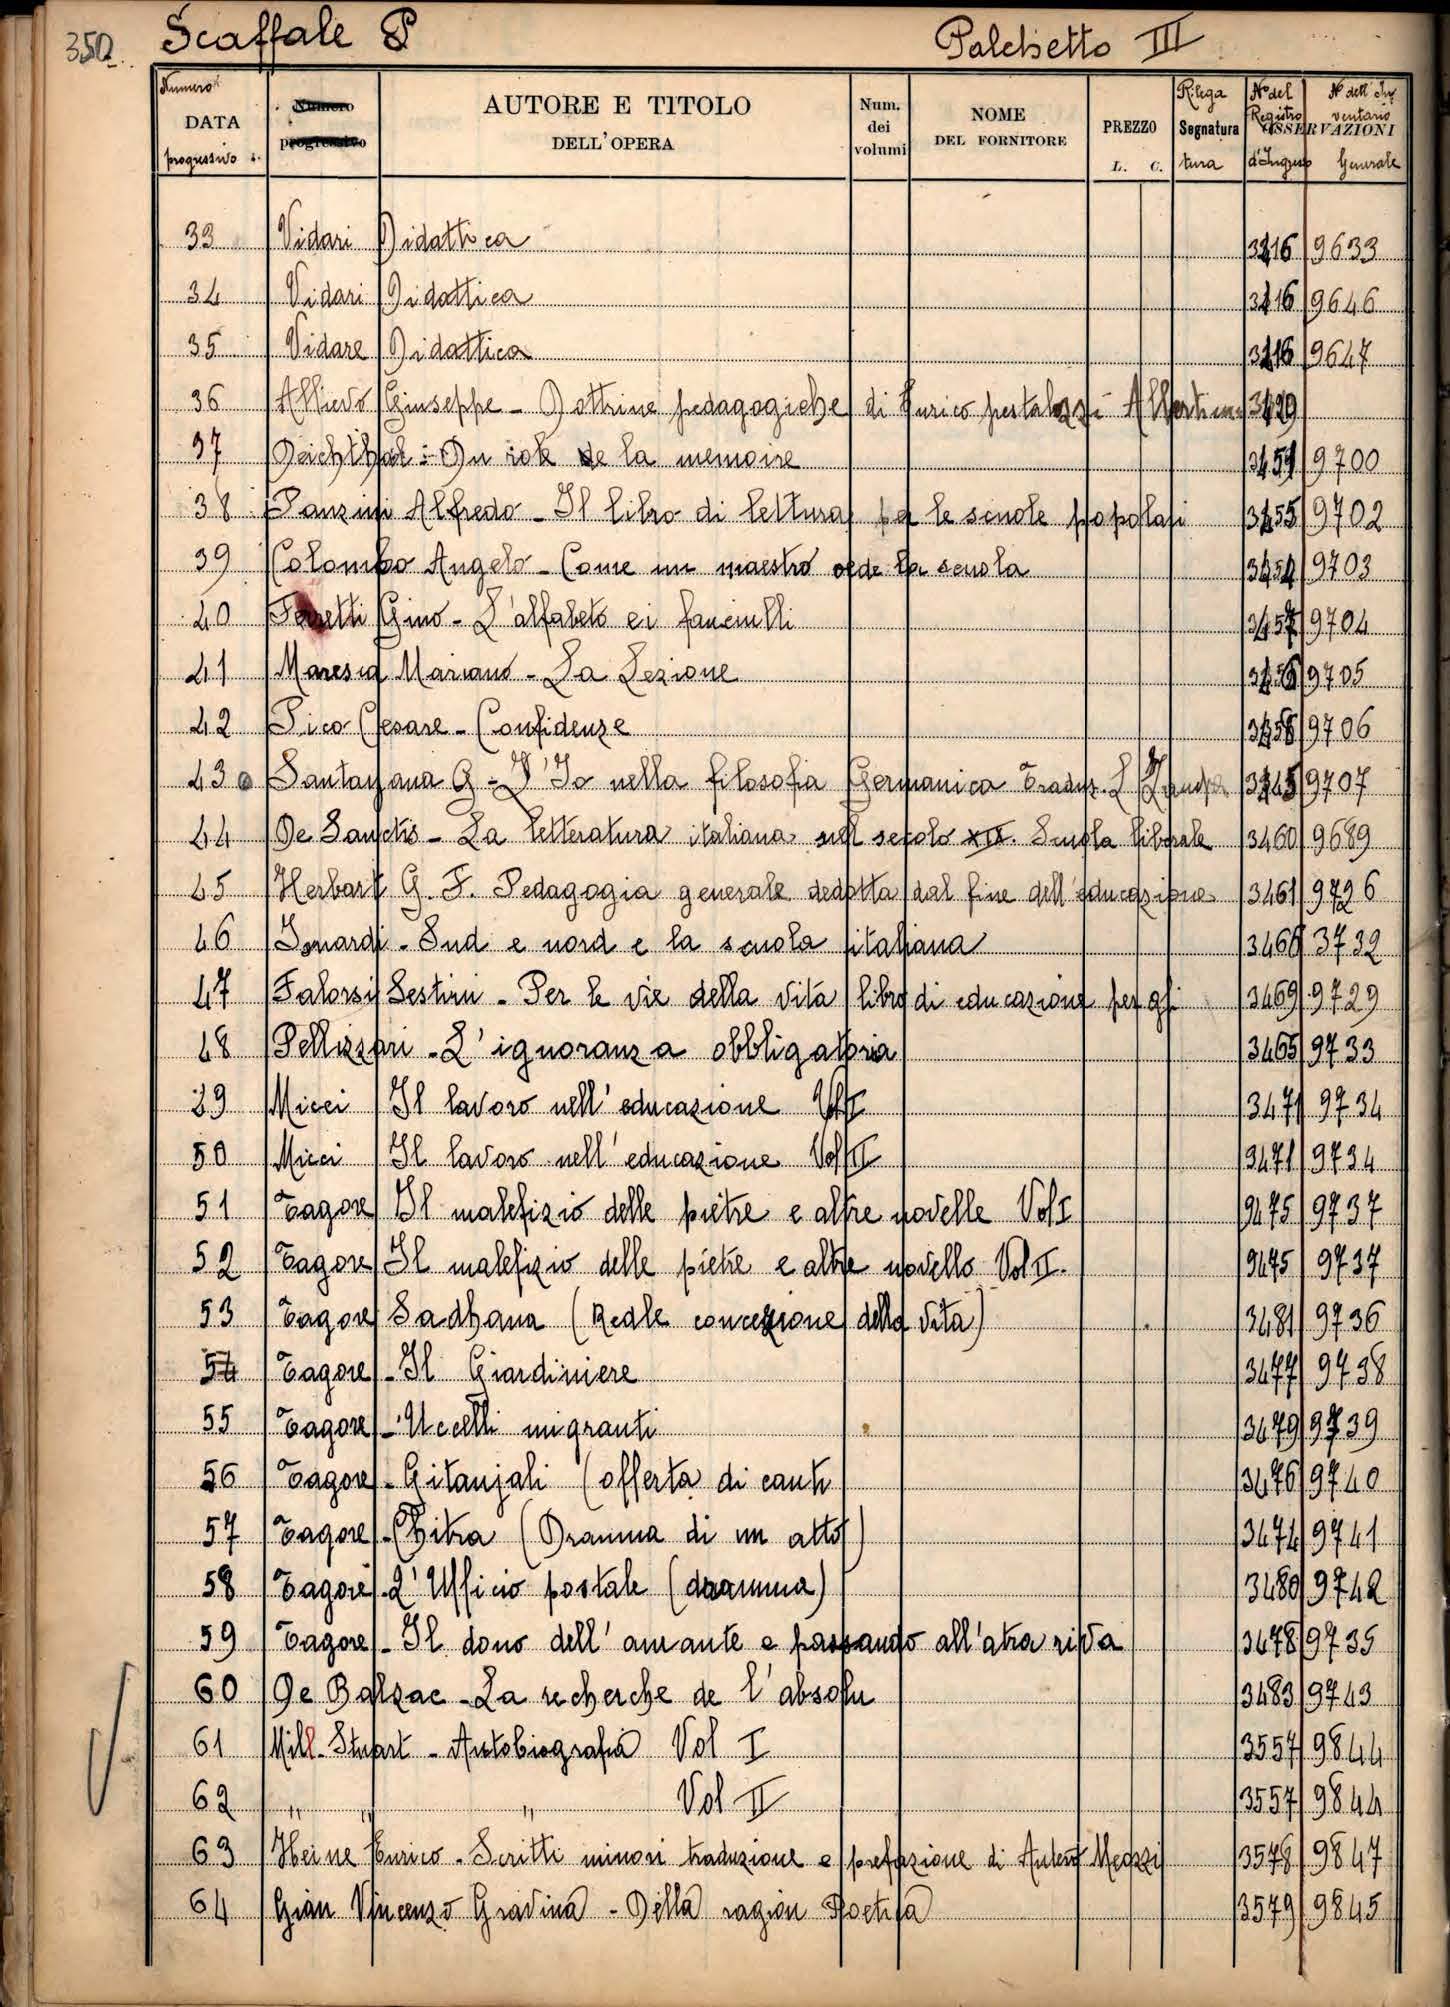 350
Scaffale P Palchetto III
Numero DATA progressivo Numero progressivo AUTORE E TITOLO DELL'OPERA Num. dei volumi NOME DEL FORNITORE PREZZO L. C. Rilega Segnatura tura N° del Registro d'Ingresso OSSERVAZIONI N° dell'Inventario Generale
33 Vidari Didattica 3416 9633
34 Vidari Didattica 3416 9646
35 Vidare Didattica 3416 9647
36 Allievo Giuseppe - Dottrine pedagogiche di Enrico pestalozzi
37 Deichthal - Du role de la memoire 9700
38 Panzini Alfredo - Il libro di lettura per le scuole popolari 3455 9702
39 Colombo Angelo - Come un maestro vede la scuola 3454 9703
40 Ferretti Gino - L'alfabeto e i fanciulli 3457 9704
41 Maresca Mariano - La Lezione 3456 9705
42 Pico Cesare - Confidenze 9706
43 Santayana G - L'Io nella filosofia Germanica Traduz. L 9707
44 De Sanctis - La letteratura italiana nel secolo XIX. Scuola liberale 3460 9689
45 Herbart G. F. Pedagogia generale dedotta dal fine dell'educazione 3461 9726
46 Isnardi - Sud e nord e la scuola italiana 3466 3732
47 Falorsi Sestini - Per le vie della vita libro di educazione per gli 3469 9729
48 Pellizzari - L'ignoranza obbligatoria 3465 9733
49 Micci Il lavoro nell'educazione Vol I 3471 9734
50 Micci Il lavoro nell'educazione Vol II 3471 9734
51 Tagore Il malefizio delle pietre e altre novelle Vol I 9475 9737
52 Tagore Il malefizio delle pietre e altre novelle Vol II. 9475 9737
53 Tagore Sadhana (Reale concezione della vita) 3481 9736
54 Tagore - Il Giardiniere 3477 9738
55 Tagore - Uccelli migranti 3479 9739
56 Tagore - Gitanjali (offerta di canti 3476 9740
57 Tagore - Chitra (Dramma di un atto) 3474 9741
58 Tagore - L'Ufficio postale (dramma) 3480 9742
59 Tagore - Il dono dell'amante e passando all'atra riva 3478 9735
60 De Balzac - La recherche de l'absolu 3483 9743
61 Mill-Stuart - Autobiografia Vol I 3557 9844
62 " " " Vol II 3557 9844
63 Heine Enrico - Scritti minori traduzione e prefazione di Antero Meozzi 3578 9847
64 Gian Vincenzo Gravina - Della ragion Poetica 3579 9845